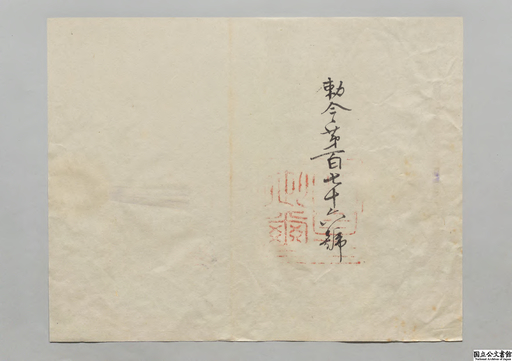 勅令第百七十六號
国立公文書館
National Archives of Japan